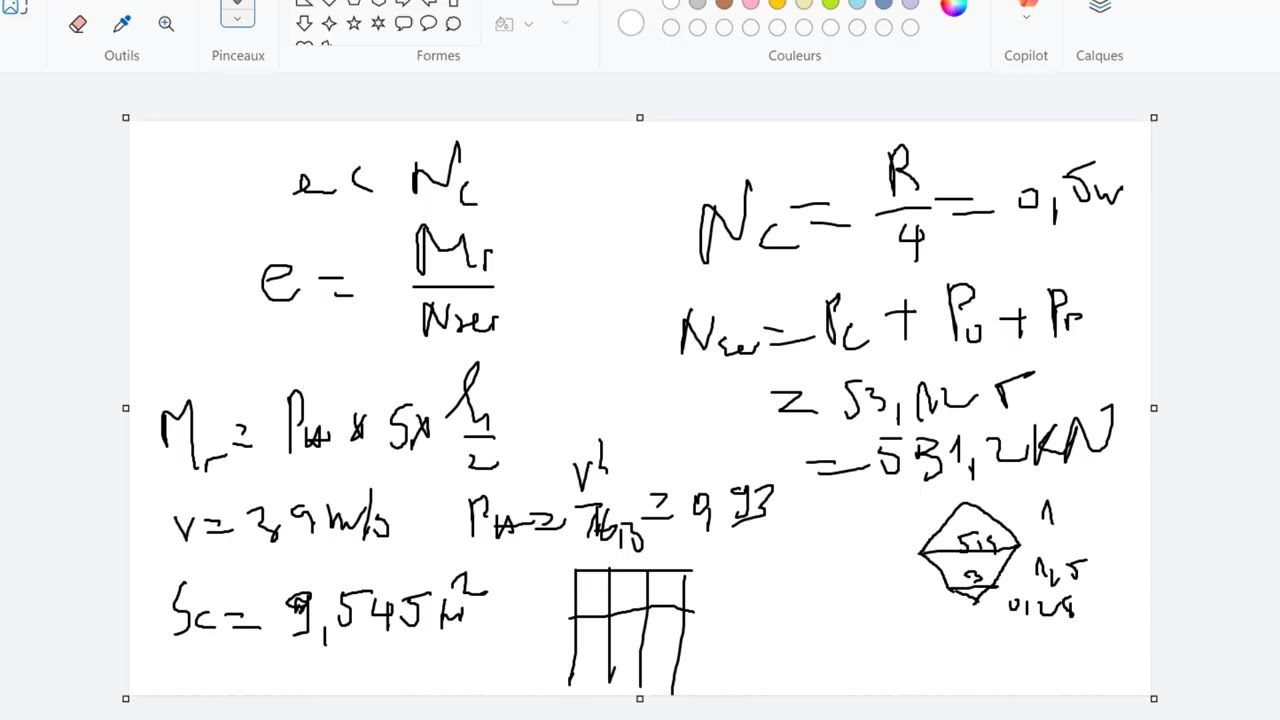 Outils Pinceaux Formes Couleurs Copilot Calques
e < Nc
e = Mr / Nser
Nc = R/4 = 0,5m
Nser = Pc + Pu + Pr
= 53,12 T
= 531,2 KN
Mr = × S × h/2
V = 39 m/s
V² = 0,93
Sc = 9,545 m²
1
3
1,25
0,28